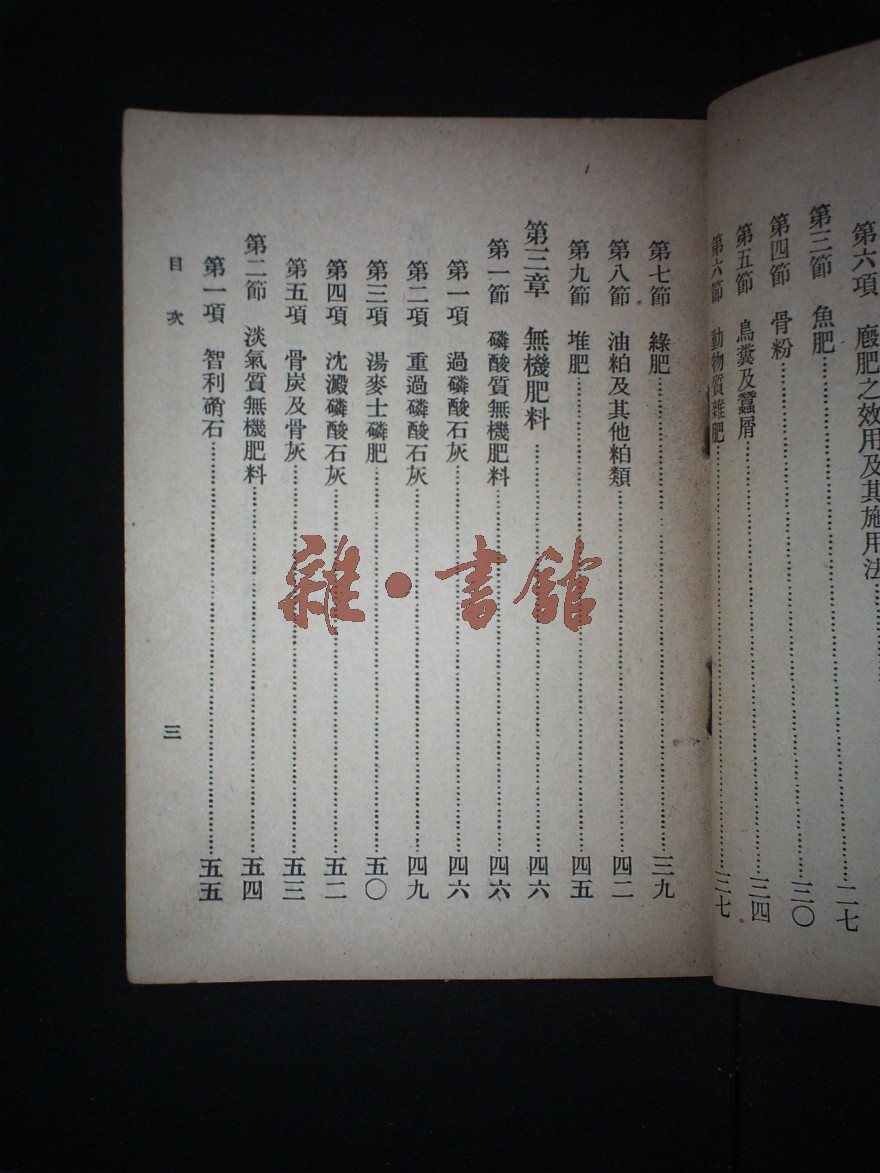 第六項　廄肥之效用及其施用法……二七
第三節　魚肥……三〇
第四節　骨粉……三四
第五節　鳥糞及蠶屑……三七
第六節　動物質雜肥
第七節　綠肥……三九
第八節　油粕及其他粕類……四二
第九節　堆肥……四五
第三章　無機肥料……四六
第一節　磷酸質無機肥料……四六
第一項　過磷酸石灰……四六
第二項　重過磷酸石灰……四九
第三項　湯麥士磷肥……五〇
第四項　沈澱磷酸石灰……五二
第五項　骨炭及骨灰……五三
第二節　淡氣質無機肥料……五四
第一項　智利硝石……五五
目次
三
雜·書館